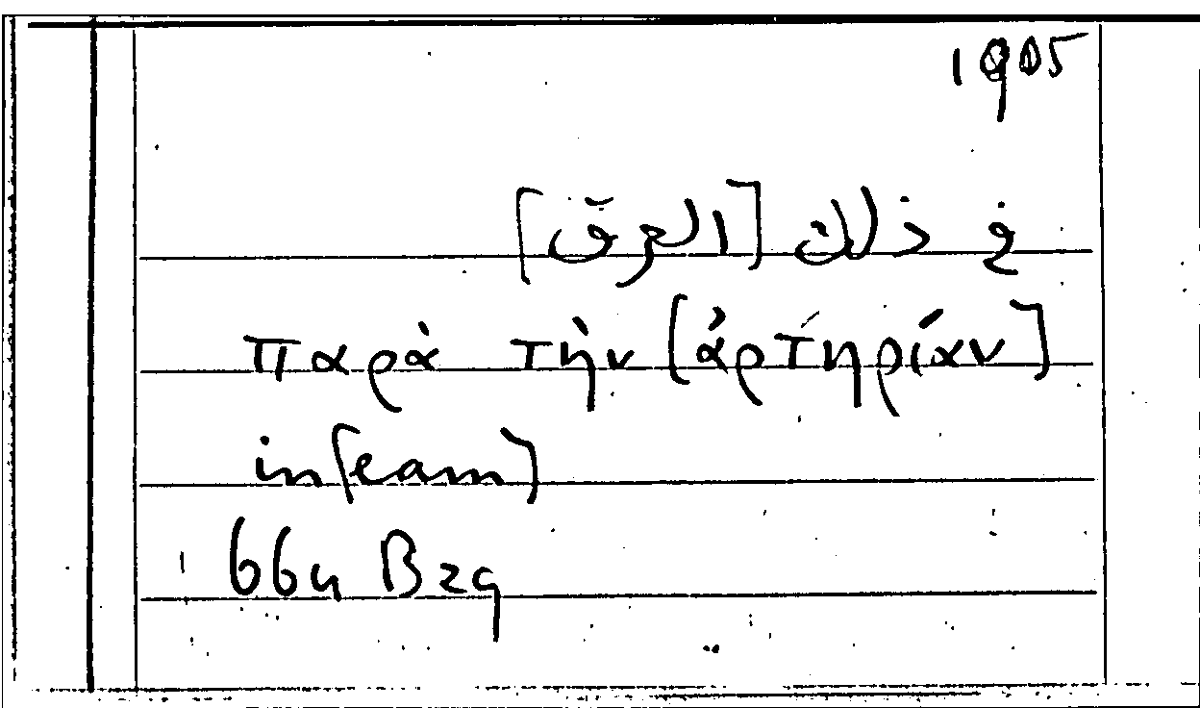 1905
في ذلك [العرق]
παρὰ τὴν [ἀρτηρίαν]
in [eam]
664 B29